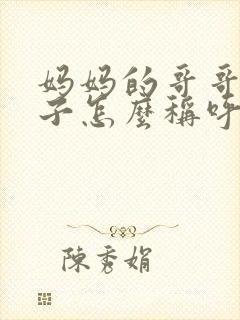 妈妈的哥哥
子怎麼稱呼
陳秀娟